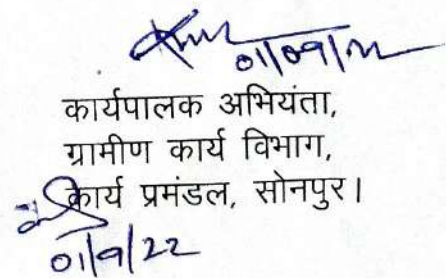 01/09/22
कार्यपालक अभियंता,
ग्रामीण कार्य विभाग,
कार्य प्रमंडल, सोनपुर।
01/9/22